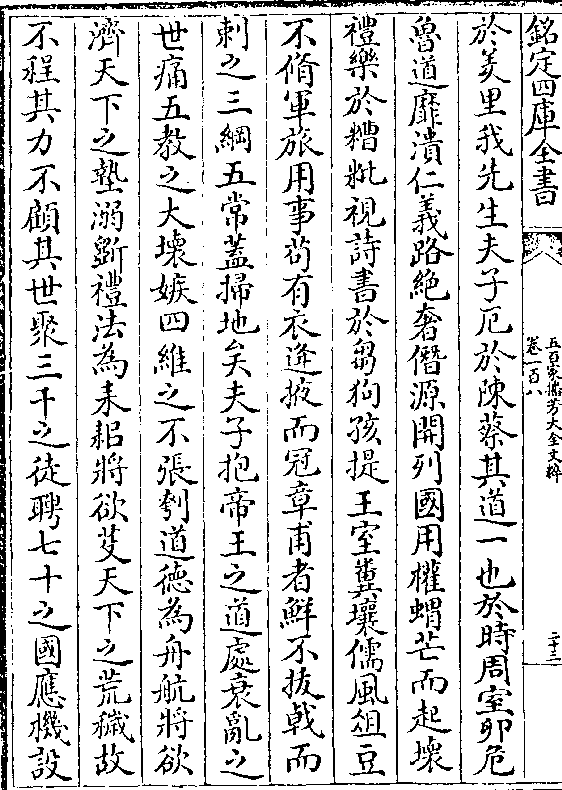 欽定四庫全書
五百家播芳大全文粹
卷一百八
二十三
於羑里我先生夫子厄於陳蔡其道一也於時周室卵危
魯道靡潰仁義路絶奢僭源開列國用權蝟芒而起壊
禮樂於糟粃視詩書於芻狗孩提王室糞壤儒風俎豆
不脩軍旅用事苟有衣逢掖而冠章甫者鮮不拔戟而
刺之三綱五常蓋掃地矣夫子抱帝王之道處衰亂之
世痛五教之大壊嫉四維之不張刳道徳為舟航將欲
濟天下之墊溺斲禮法為耒耜將欲芟天下之荒穢故
不程其力不顧其世聚三千之徒聘七十之國應機設